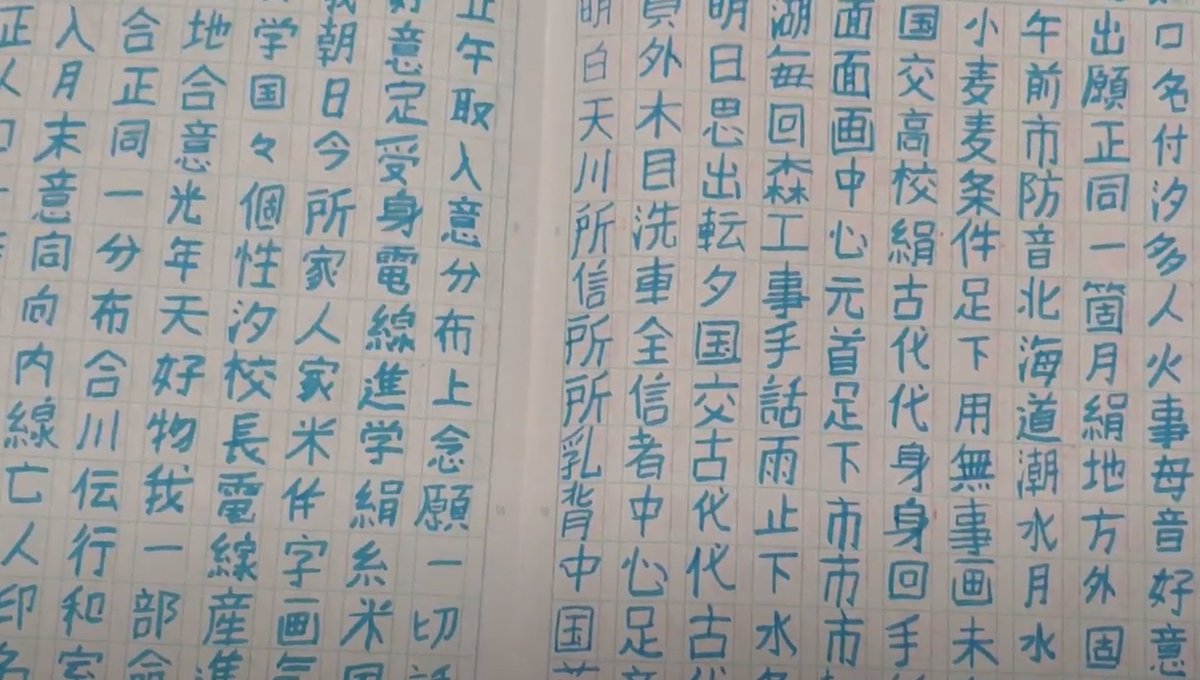 口名付汐多人火事母音好意
出願正同一箇月絹地方外固
午前市防音北海道潮水月水
小麦麦条件足下用無事画未
国交高校絹古代代身身回手
面面画中心元首足下市市市
湖毎回森工事手話雨止下水
明日思出転夕国交古代代古
員外木目洗車全信者中心足
明白天川所信所所乳背中国
正午取入意分布上念願一切
好意定受身電線進学絹糸米
我朝日今所家人家米件字画
学国々個性汐校長電線産進
地合意光年天好物我一部
合正同一分布合川伝行和
入月末意同向内線亡人印
正人